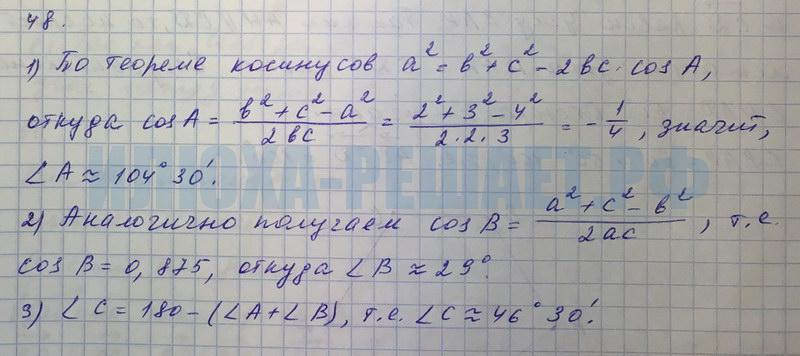 48.
1) По теореме косинусов a² = b² + c² - 2bc · cos A,
откуда cos A = (b² + c² - a²) / 2bc = (2² + 3² - 4²) / 2·2·3 = - 1/4, значит,
∠A ≈ 104° 30′.
ИЛЮХА-РЕШАЕТ.РФ
2) Аналогично получаем cos B = (a² + c² - b²) / 2ac, т.е.
cos B = 0,875, откуда ∠B ≈ 29°.
3) ∠C = 180 - (∠A + ∠B), т.е. ∠C ≈ 46° 30′.